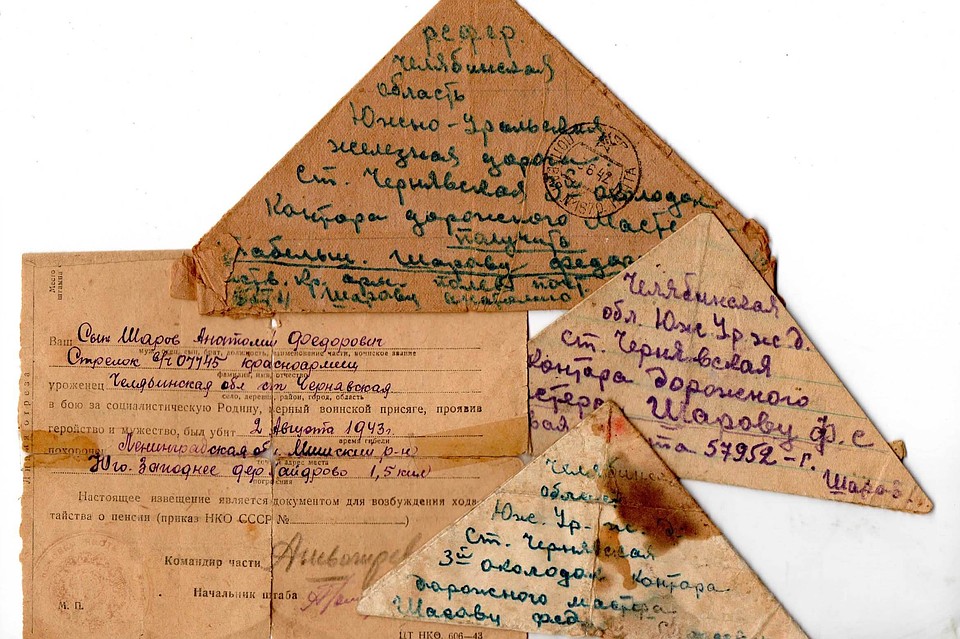 рефер.
Челябинская
область
Южно-Уральская
железная дорога.
Ст. Чернявская околодок
Контора дорожного Масте
получить
Табельщ. Шарову Федор
Шарову Анатолию
Челябинская
обл. Юж. Ур. ж. д.
ст. Чернявская
Контора Дорожного
Шарову Ф. С
57952-Г.
Шаров.
Место
штампа
Ваш Сын Шаров Анатолий Федорович
муж, сын, брат, должность, наименование части, воинское звание
Стрелок в/ч 07745 красноармеец
фамилия, имя, отчество
уроженец Челябинская обл ст Чернявская
село, деревня, район, город, область
в бою за социалистическую Родину, верный воинской присяге, проявив
геройство и мужество, был убит 2 Августа 1943 г.
время гибели
похоронен Ленинградская обл. Мгинский р-н
Юго-Западнее дер 1,5 килм
погребения
Настоящее извещение является документом для возбуждения хода-
тайства о пенсии (приказ НКО СССР № )
Командир части
Начальник штаба
М. П.
ЦТ НКО. 606—43
Челябинская
область
Юж. Ур-ж-д-
Ст. Чернявская
3й околодок контора
Дорожного мастера
Шарову Фед